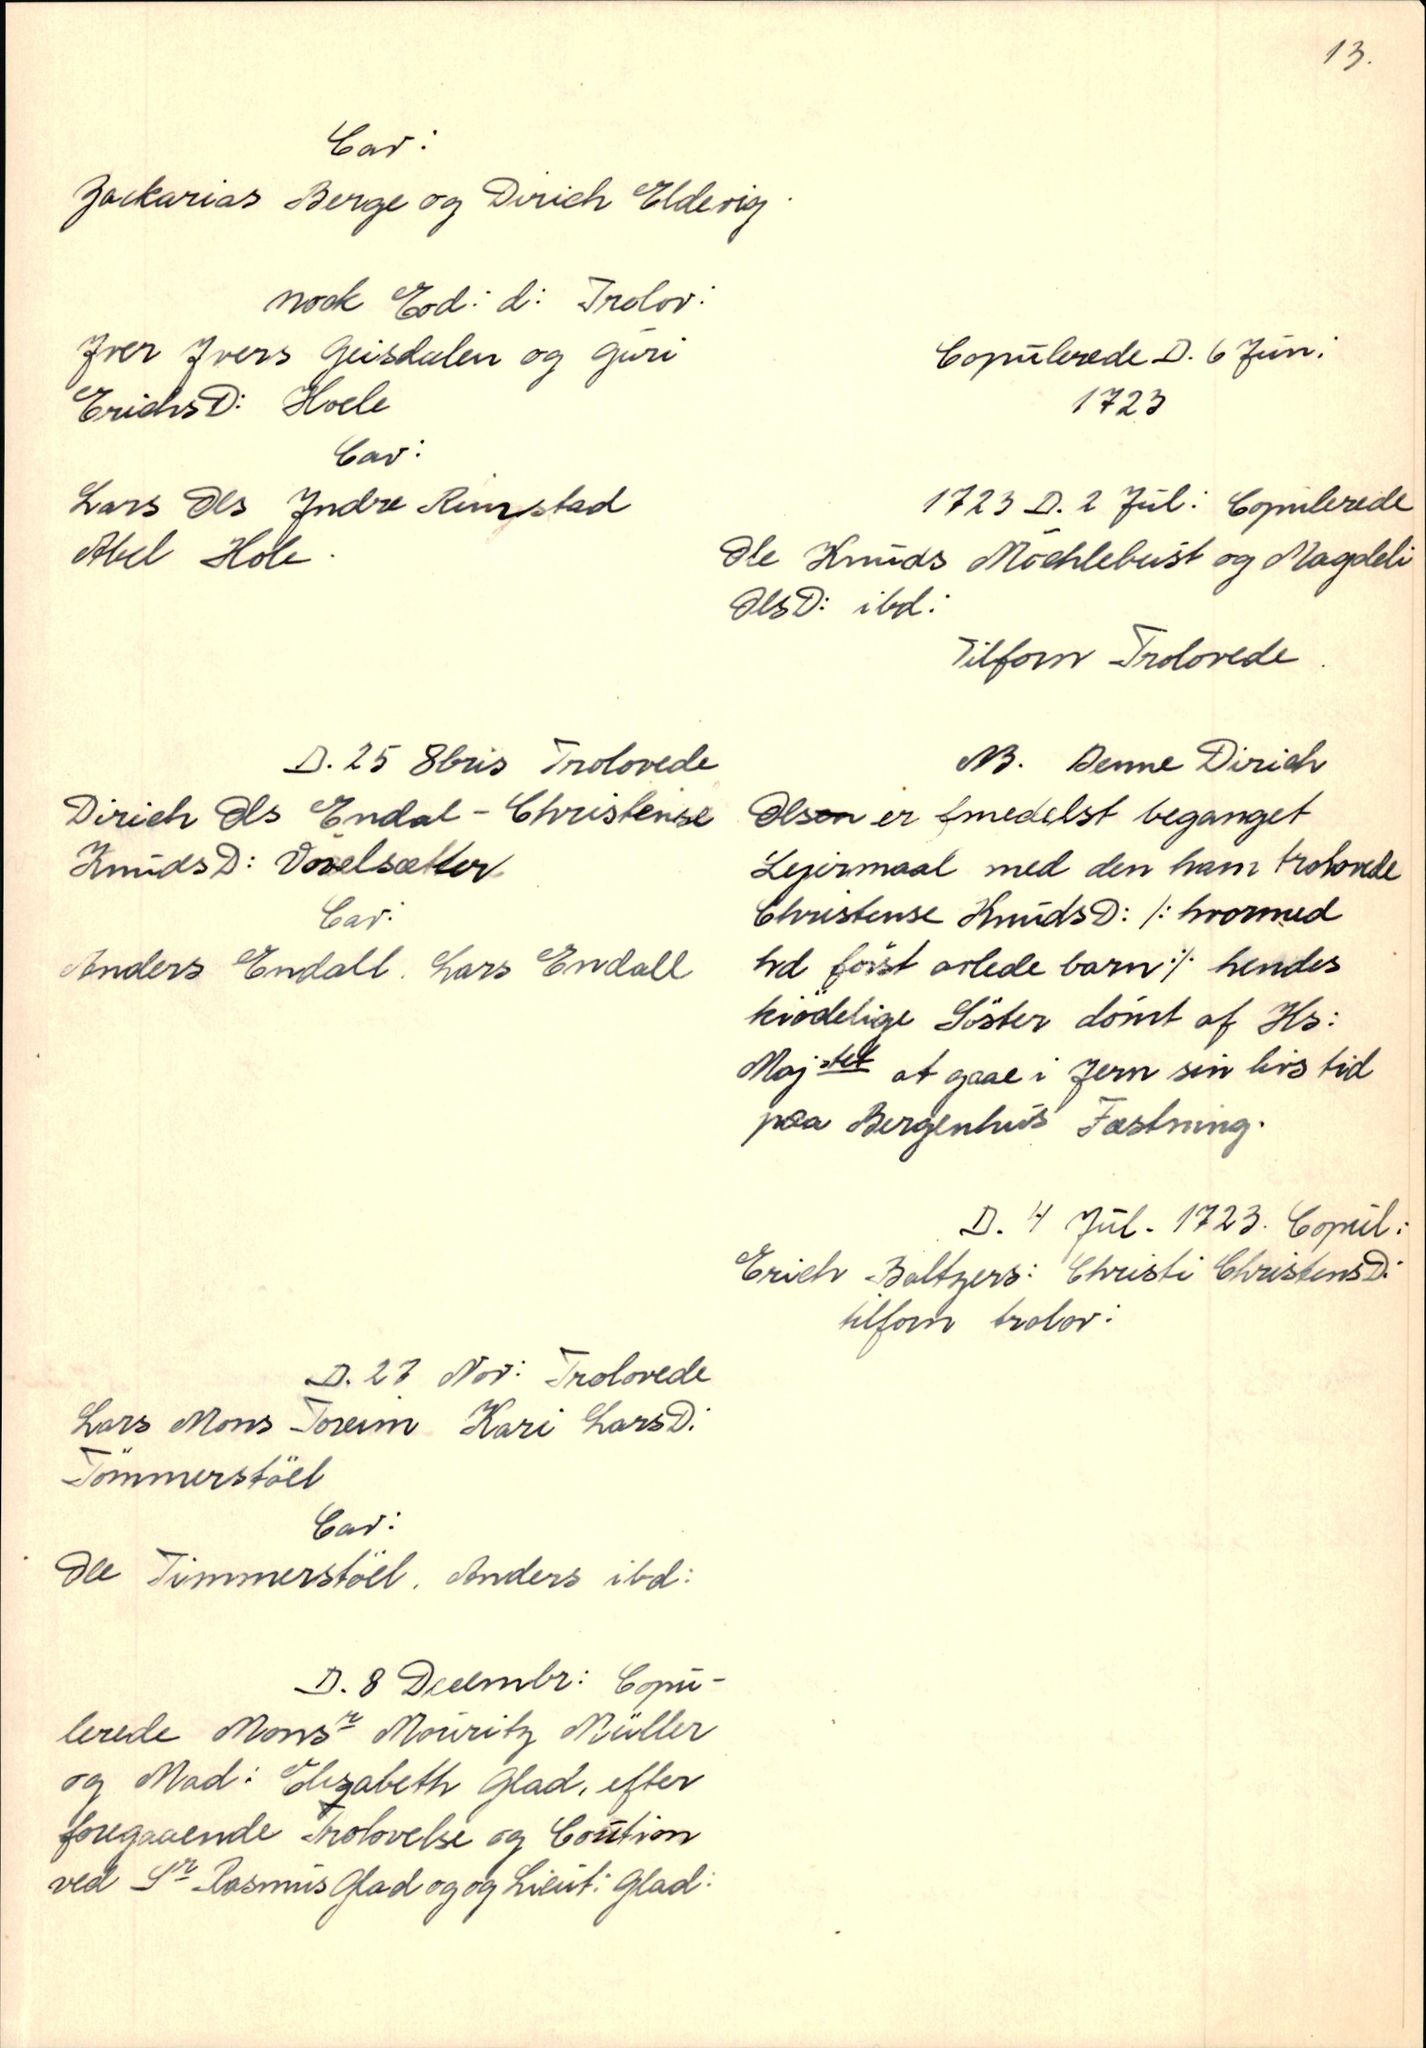 13.
Cav:
Zackarias Berge og Dirich Eldevig.
nock Eod: d: Trolov:
Iver Ivers Geisdalen og Guri
ErichsD: Hoele
Cav:
Lars Ols Indre Rimstad
Abel Hole.
D. 25 8bris Trolovede
Dirich Ols Endal - Christense
KnudsD: Vovelsætter
Cav:
Anders Endall. Lars Endall
D. 27 Nov: Trolovede
Lars Mons Toreim Kari LarsD:
Tömmerstöel
Cav:
Ole Timmerstöel. Anders ibd:
D. 8 Decembr: Copu-
lerede Monsr Mouritz Müller
og Mad: Elizabeth Glad, efter
foregaaende Trolovelse og Coution
ved Sr Rasmus Glad og og Lieut: Glad:
Copulerede D. 6 Jun:
1723
1723 D. 2 Jul: Copulerede
Ole Knuds Möchlebust og Magdeli
OlsD: ibd:
Tilforn Trolovede.
NB. Denne Dirich
Olson er fmedelst beganget
Lejermaal med den ham trolovede
Christense KnudsD: /: hvormed
hd först avlede barn :/ hendes
kiödelige Söster dömt af Hs:
Majstet at gaae i Jern sin livs tid
paa Bergenhus Fæstning.
D. 4 Jul. 1723. Copul:
Erich Baltzers: Christi ChristensD:
tilforn trolov: